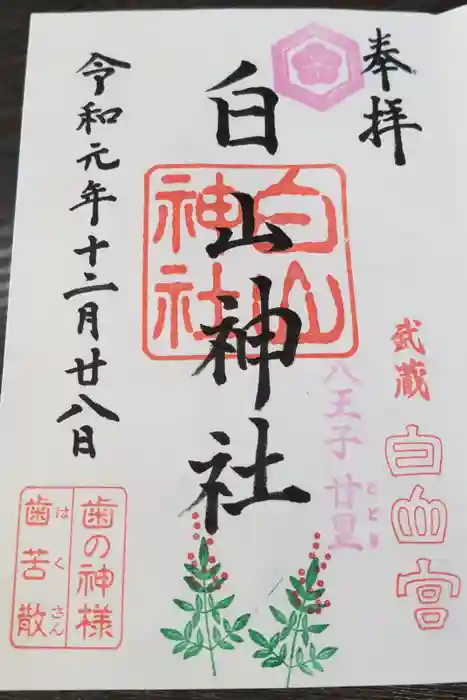 奉拝
白山神社
白山
神社
武蔵
白山宮
八王子 廿里
とどり
令和元年十二月廿八日
歯の神様
歯苦散
はくさん